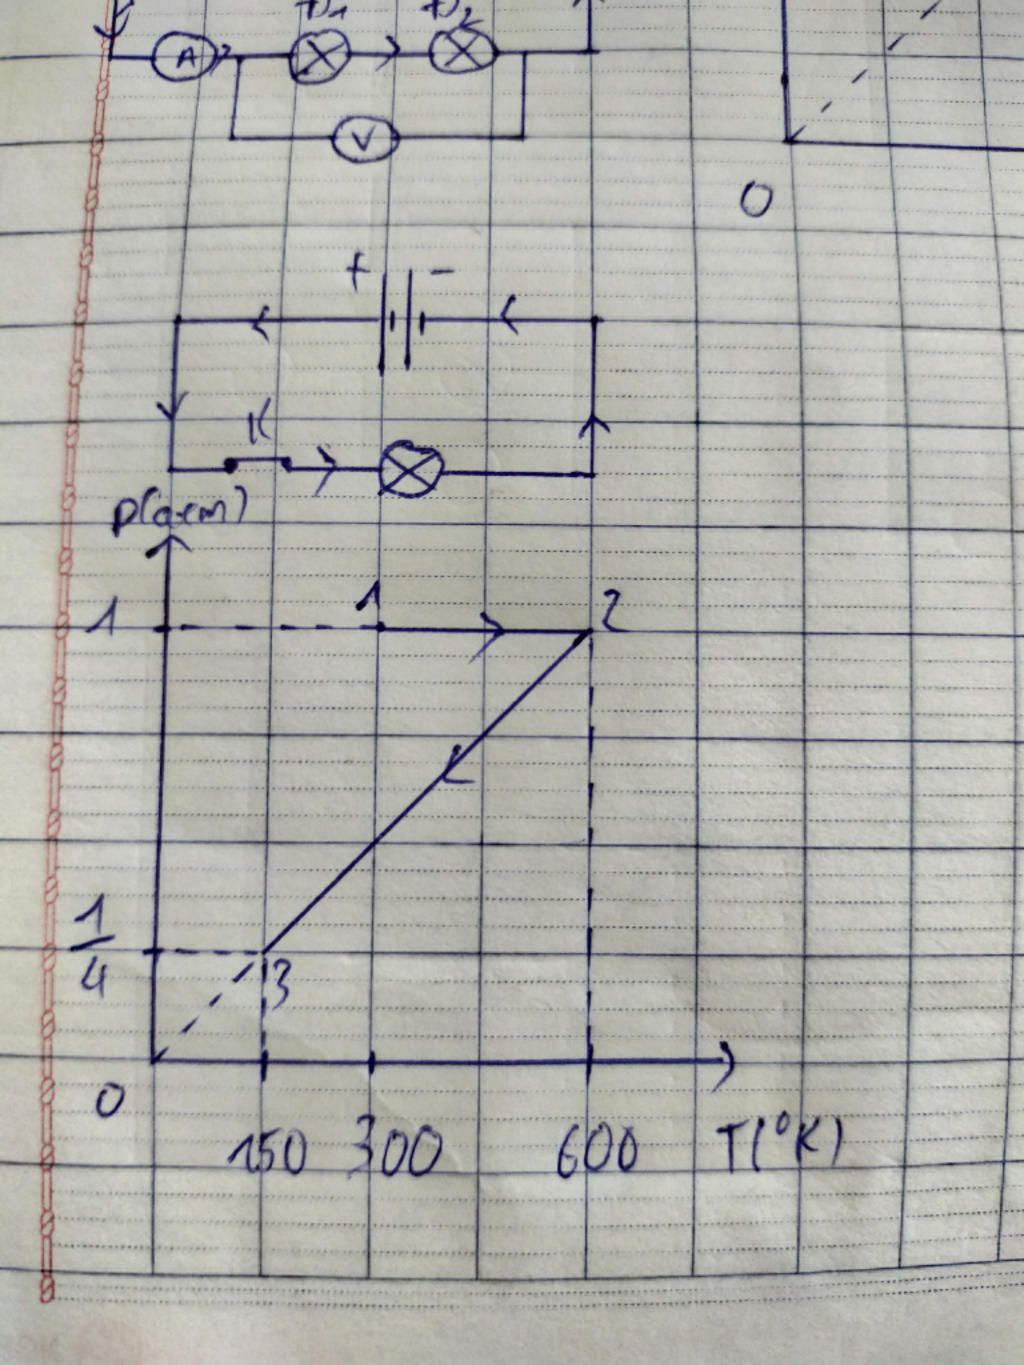 Đ1 Đ2
A
V
0
+ -
K
p(atm)
1 1 2
1/4
3
0
150 300 600 T(°K)